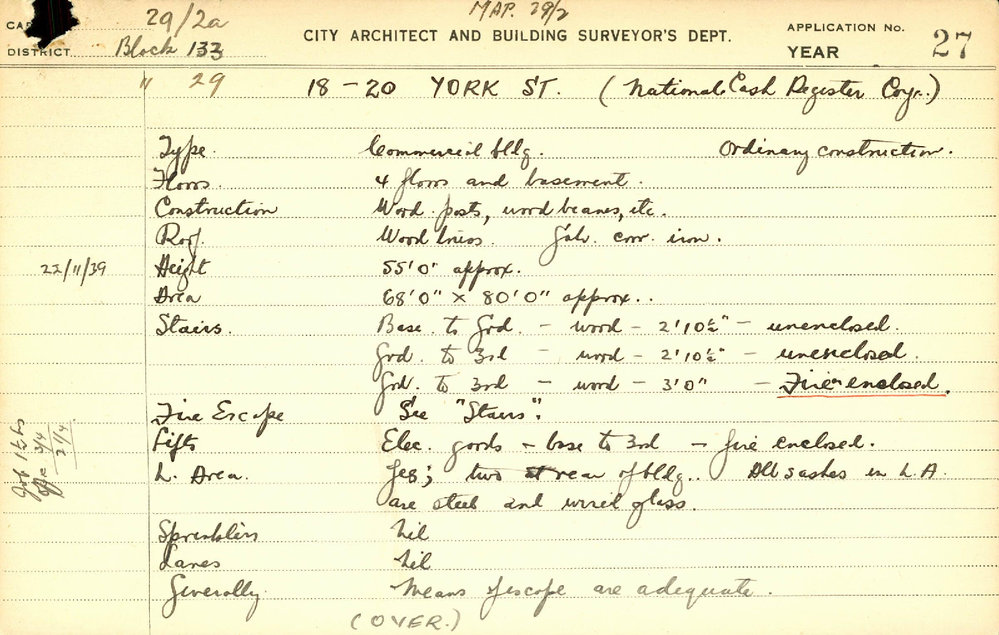 MAP. 29/2
29/2a
CITY ARCHITECT AND BUILDING SURVEYOR'S DEPT.
APPLICATION No.
27
DISTRICT Block 133
YEAR
" 29 18-20 YORK ST. (National Cash Register Coy.)
Type. Commercial bldg. Ordinary construction.
Floors. 4 floors and basement.
Construction Wood posts, wood beams, etc.
Roof. Wood Galv. corr. iron.
22/11/39 Height 55'0" approx.
Area 68'0" x 80'0" approx..
Stairs. Base. to Grd. - wood - 2'10½" - unenclosed.
Grd. to 3rd - wood - 2'10½" - unenclosed.
Grd. to 3rd - wood - 3'0" - Fire enclosed.
Fire Escape See "Stairs".
Lifts Elec. goods - base to 3rd - fire enclosed.
L. Area. Yes; two at rear of bldg.. All sashes in L.A.
are steel and wired glass.
Sprinklers Nil
Lanes Nil
Generally. Means of escape are adequate.
(OVER.)
3/4
21/4